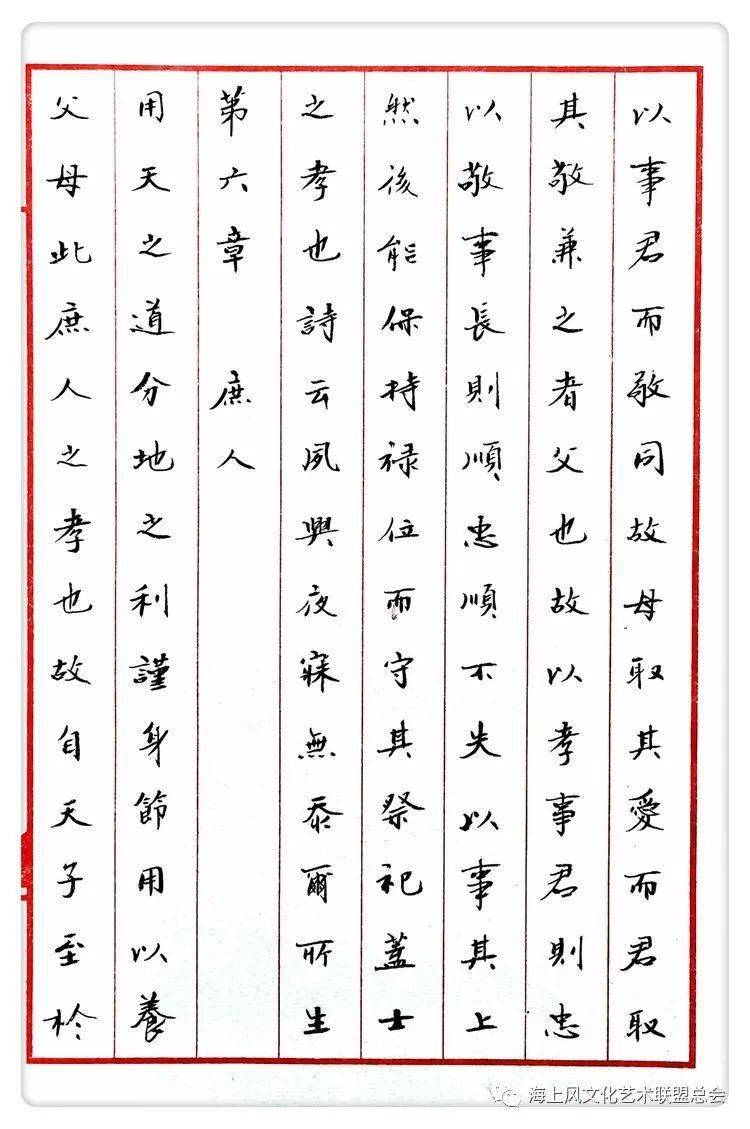 以事君而敬同故母取其愛而君取
其敬兼之者父也故以孝事君則忠
以敬事長則順忠順不失以事其上
然後能保持禄位而守其祭祀蓋士
之孝也詩云夙興夜寐無忝爾所生
第六章 庶人
用天之道分地之利謹身節用以養
父母此庶人之孝也故自天子至於
海上风文化艺术联盟总会